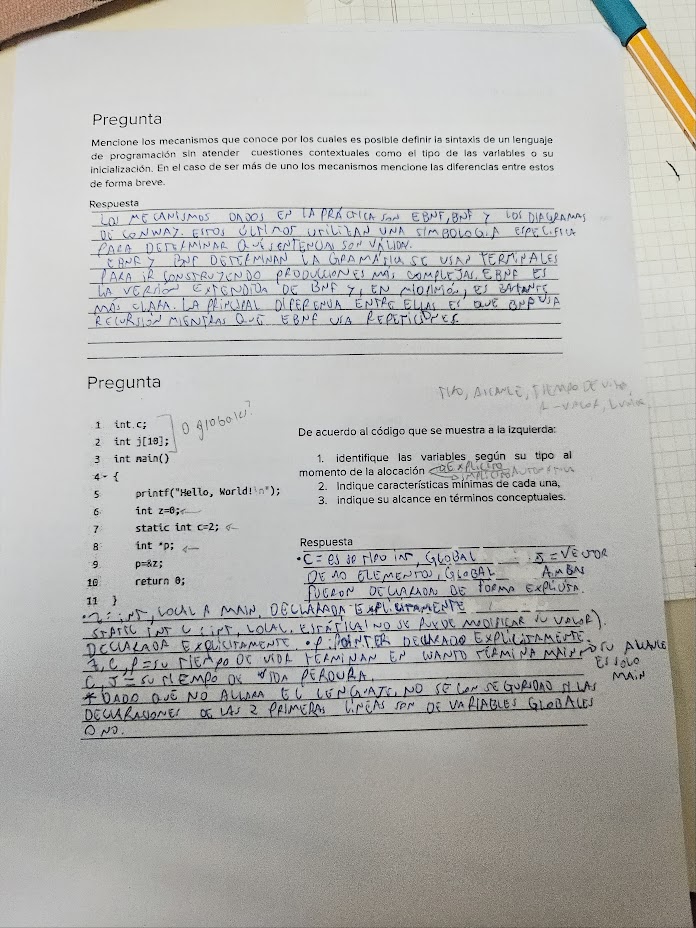 Pregunta
Mencione los mecanismos que conoce por los cuales es posible definir la sintaxis de un lenguaje
de programación sin atender cuestiones contextuales como el tipo de las variables o su
inicialización. En el caso de ser más de uno los mecanismos mencione las diferencias entre estos
de forma breve.
Respuesta
LOS MECANISMOS DADOS EN LA PRÁCTICA SON EBNF, BNF Y LOS DIAGRAMAS
DE CONWAY. ESTOS ÚLTIMOS UTILIZAN UNA SIMBOLOGIA ESPECIFICA
PARA DETERMINAR QUÉ SENTENCIAS SON VÁLIDAS.
EBNF Y BNF DETERMINAN LA GRAMÁTICA SE USAN TERMINALES
PARA IR CONSTRUYENDO PRODUCCIONES MÁS COMPLEJAS. EBNF ES
LA VERSIÓN EXTENDIDA DE BNF Y, EN MI OPINIÓN, ES BASTANTE
MÁS CLARA. LA PRINCIPAL DIFERENCIA ENTRE ELLAS ES QUE BNF USA
RECURSIÓN MIENTRAS QUE EBNF USA REPETICIONES.
Pregunta
TIPO, ALCANCE, TIEMPO DE VIDA,
R-VALOR, L-VALOR
1 int c;
2 int j[10];
O globales?
3 int main()
4 {
5 printf("Hello, World!\n");
6 int z=0;
7 static int c=2;
8 int *p;
9 p=&z;
10 return 0;
11 }
De acuerdo al código que se muestra a la izquierda:
1. identifique las variables según su tipo al
momento de la alocación EXPLÍCITO
IMPLÍCITO AUTOMÁTICA
2. Indique características mínimas de cada una,
3. indique su alcance en términos conceptuales.
Respuesta
• C = es de TIPO INT, GLOBAL J = VECTOR
DE 10 ELEMENTOS, GLOBAL AMBAS
FUERON DECLARADA DE FORMA EXPLÍCITA.
• Z: INT, LOCAL A MAIN, DECLARADA EXPLICITAMENTE
STATIC INT C (INT, LOCAL, ESTÁTICA(NO SE PUEDE MODIFICAR SU VALOR).
DECLARADA EXPLICITAMENTE. • P: POINTER DECLARADO EXPLÍCITAMENTE.
Z, C, P = SU TIEMPO DE VIDA TERMINAN EN CUANTO TERMINA MAIN → SU ALCANCE
ES SOLO
MAIN
C, J = SU TIEMPO DE VIDA PERDURA.
* DADO QUE NO ACLARA EL LENGUAJE, NO SE CON SEGURIDAD SI LAS
DECLARACIONES DE LAS 2 PRIMERAS LÍNEAS SON DE VARIABLES GLOBALES
O NO.